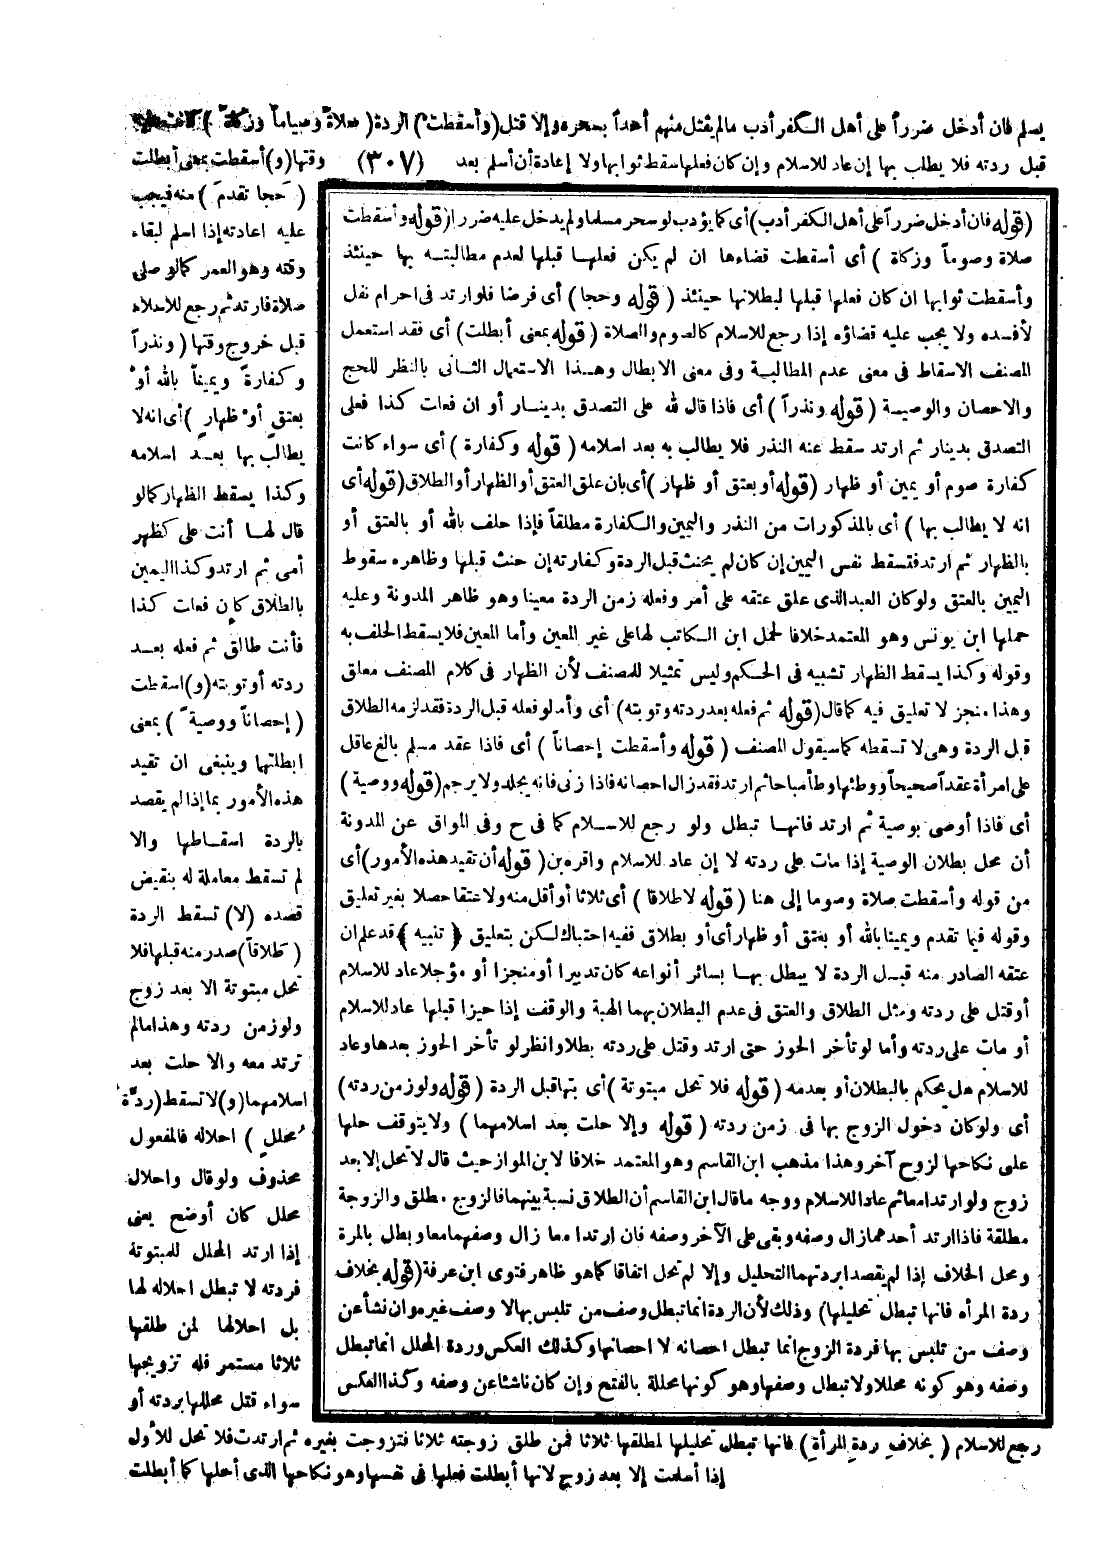 يسلم فان أدخل ضرراً على أهل الكفر أدب مالم يقتل منهم أحداً بسحره وإلا قتل (وأسقطت) الردة (صلاة وصياماً وزكاة)
قبل ردته فلا يطلب بها إن عاد للاسلام وإن كان فعلها سقط ثوابها ولا إعادة أن أسلم بعد (٣٠٧) وقتها (و) أسقطت بمعنى أبطلت
(حجا تقدم) منه فيجب
عليه اعادته إذا اسلم لبقاء
وقته وهو العمر كما لو صلى
صلاة فارتد ثم رجع للاسلام
قبل خروج وقتها (ونذراً
وكفارة ويميناً بالله أو
بعتق أو ظهار) أى انه لا
يطالب بها بعد اسلامه
وكذا يسقط الظهار كما لو
قال لها أنت على كظهر
أمى ثم ارتد وكذا اليمين
بالطلاق كان فعلت كذا
فأنت طالق ثم فعله بعد
ردته أو توبته (و) اسقطت
(إحصاناً ووصية) بمعنى
ابطلتها وينبغى ان تقيد
هذه الأمور بما إذا لم يقصد
بالردة اسقاطها والا
لم تسقط معاملة له بنقيض
قصده (لا) تسقط الردة
(طلاقاً) صدر منه قبلها فلا
تحل مبتوتة الا بعد زوج
ولو زمن ردته وهذا مالم
ترتد معه والا حلت بعد
اسلامهما (و) لا تسقط (ردة
محلل) احلاله فالمفعول
محذوف ولو قال واحلال
محلل كان أوضح يعنى
إذا ارتد المحلل للمبتوتة
فردته لا تبطل احلاله لها
بل احلالها لمن طلقها
ثلاثا مستمر فله تزويجها
سواء قتل محللها بردته أو
(قوله فان أدخل ضرراً على أهل الكفر أدب) أى كما يؤدب لو سحر مسلما ولم يدخل عليه ضررا (قوله وأسقطت
صلاة وصوماً وزكاة) أى أسقطت قضاءها ان لم يكن فعلها قبلها لعدم مطالبته بها حينئذ
وأسقطت ثوابها ان كان فعلها قبلها لبطلانها حينئذ (قوله وحجا) أى فرضا فلو ارتد فى احرام نفل
لأفسده ولا يجب عليه قضاؤه إذا رجع للاسلام كالصوم والصلاة (قوله بمعنى أبطلت) أى فقد استعمل
المصنف الاسقاط فى معنى عدم المطالبة وفى معنى الابطال وهذا الاستعمال الثانى بالنظر للحج
والاحصان والوصية (قوله ونذراً) أى فاذا قال لله على التصدق بدينار أو ان فعلت كذا فعلى
التصدق بدينار ثم ارتد سقط عنه النذر فلا يطالب به بعد اسلامه (قوله وكفارة) أى سواء كانت
كفارة صوم أو يمين أو ظهار (قوله أو بعتق أو ظهار) أى بان علق العتق أو الظهار أو الطلاق (قوله أى
انه لا يطالب بها) أى بالمذكورات من النذر واليمين والكفارة مطلقاً فإذا حلف بالله أو بالعتق أو
بالظهار ثم ارتد فتسقط نفس اليمين إن كان لم يحنث قبل الردة وكفارته إن حنث قبلها وظاهره سقوط
اليمين بالعتق ولو كان العبد الذى علق عتقه على أمر وفعله زمن الردة معينا وهو ظاهر المدونة وعليه
حملها ابن يونس وهو المعتمد خلافا لحمل ابن الكاتب لها على غير المعين وأما المعين فلا يسقط الحلف به
وقوله وكذا يسقط الظهار تشبيه فى الحكم وليس تمثيلا للمصنف لأن الظهار فى كلام المصنف معلق
وهذا منجز لا تعليق فيه كما قال (قوله ثم فعله بعد ردته وتوبته) أى وأما لو فعله قبل الردة فقد لزمه الطلاق
قبل الردة وهى لا تسقطه كما سيقول المصنف (قوله وأسقطت إحصاناً) أى فاذا عقد مسلم بالغ عاقل
على امرأة عقداً صحيحاً ووطئها وطأ مباحا ثم ارتد فقد زال احصانه فاذا زنى فانه يجلد ولا يرجم (قوله ووصية)
أى فاذا أوصى بوصية ثم ارتد فانها تبطل ولو رجع للاسلام كما فى ح وفى المواق عن المدونة
أن محل بطلان الوصية إذا مات على ردته لا إن عاد للاسلام واقره بن (قوله أن تقيد هذه الأمور) أى
من قوله وأسقطت صلاة وصوما إلى هنا (قوله لا طلاقا) أى ثلاثا أو أقل منه ولا عتقا حصلا بغير تعليق
وقوله فيما تقدم ويمينا بالله أو بعتق أو ظهار أى أو بطلاق ففيه احتباك لكن بتعليق ﴿تنبيه﴾ قد علم ان
عتقه الصادر منه قبل الردة لا يبطل بها بسائر أنواعه كان تدبيرا أو منجزا أو مؤجلا عاد للاسلام
أو قتل على ردته ومثل الطلاق والعتق فى عدم البطلان بهما الهبة والوقف إذا حيزا قبلها عاد للاسلام
أو مات على ردته وأما لو تأخر الحوز حتى ارتد وقتل على ردته بطلا وانظر لو تأخر الحوز بعدها وعاد
للاسلام هل يحكم بالبطلان أو بعدمه (قوله فلا تحل مبتوتة) أى بتها قبل الردة (قوله ولو زمن ردته)
أى ولو كان دخول الزوج بها فى زمن ردته (قوله وإلا حلت بعد اسلامهما) ولا يتوقف حلها
على نكاحها لزوج آخر وهذا مذهب ابن القاسم وهو المعتمد خلافا لابن المواز حيث قال لا تحل إلا بعد
زوج ولو ارتدا معا ثم عادا للاسلام ووجه ما قال ابن القاسم أن الطلاق نسبة بينهما فالزوج مطلق والزوجة
مطلقة فاذا ارتد أحدهما زال وصفه وبقى على الآخر وصفه فان ارتدا معا زال وصفهما معا وبطل بالمرة
ومحل الخلاف إذا لم يقصدا بردتهما التحليل وإلا لم تحل اتفاقا كما هو ظاهر فتوى ابن عرفة (قوله بخلاف
ردة المرأه فانها تبطل تحليلها) وذلك لأن الردة انما تبطل وصف من تلبس بها لا وصف غيره وان نشأ عن
وصف من تلبس بها فردة الزوج انما تبطل احصانه لا احصانها وكذلك العكس وردة المحلل انما تبطل
وصفه وهو كونه محللا ولا تبطل وصفها وهو كونها محللة بالفتح وإن كان ناشئا عن وصفه وكذا العكس
رجع للاسلام (بخلاف ردة المرأة) فانها تبطل تحليلها لمطلقها ثلاثا فمن طلق زوجته ثلاثا فتزوجت بغيره ثم ارتدت فلا تحل للأول
إذا أسلمت إلا بعد زوج لانها أبطلت فعلها فى نفسها وهو نكاحها الذى أحلها كما أبطلت